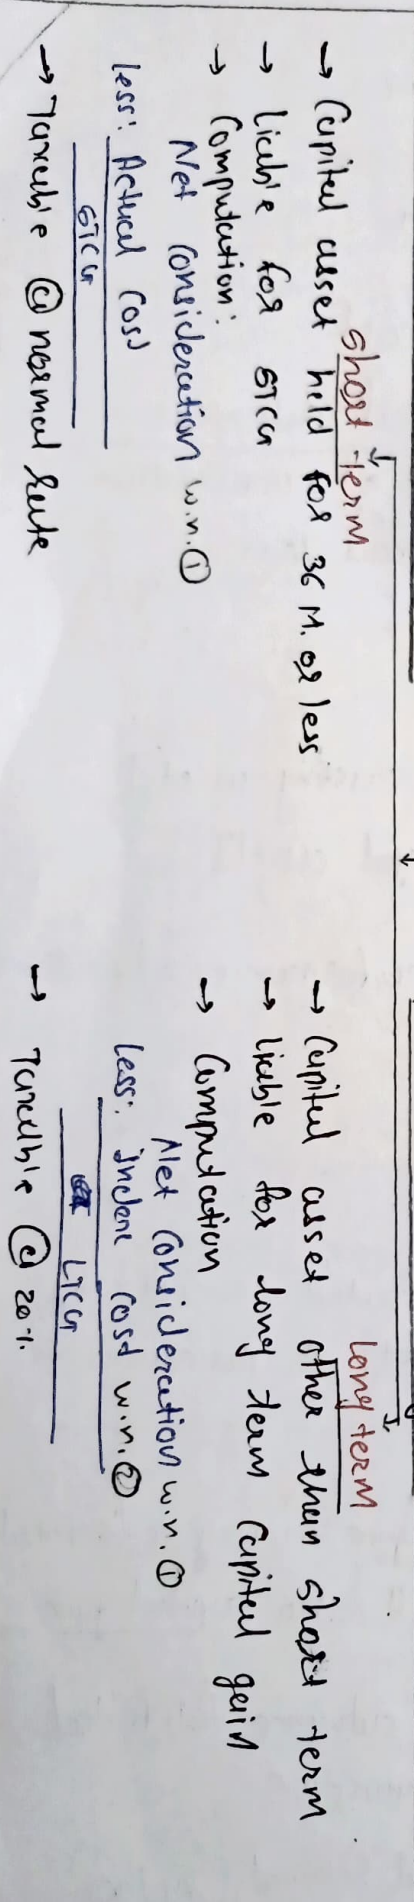 Short term
→ Capital asset held for 36 M. or less
→ Liable for STCG
→ Computation:
Net consideration w.n. ①
Less: Actual Cost
STCG
→ Taxable @ normal Rate
Long term
→ Capital asset other then short term
→ Liable for long term Capital gain
→ Computation
Net Consideration w.n. ①
Less: index cost w.n. ②
LTCG
→ Taxable @ 20%